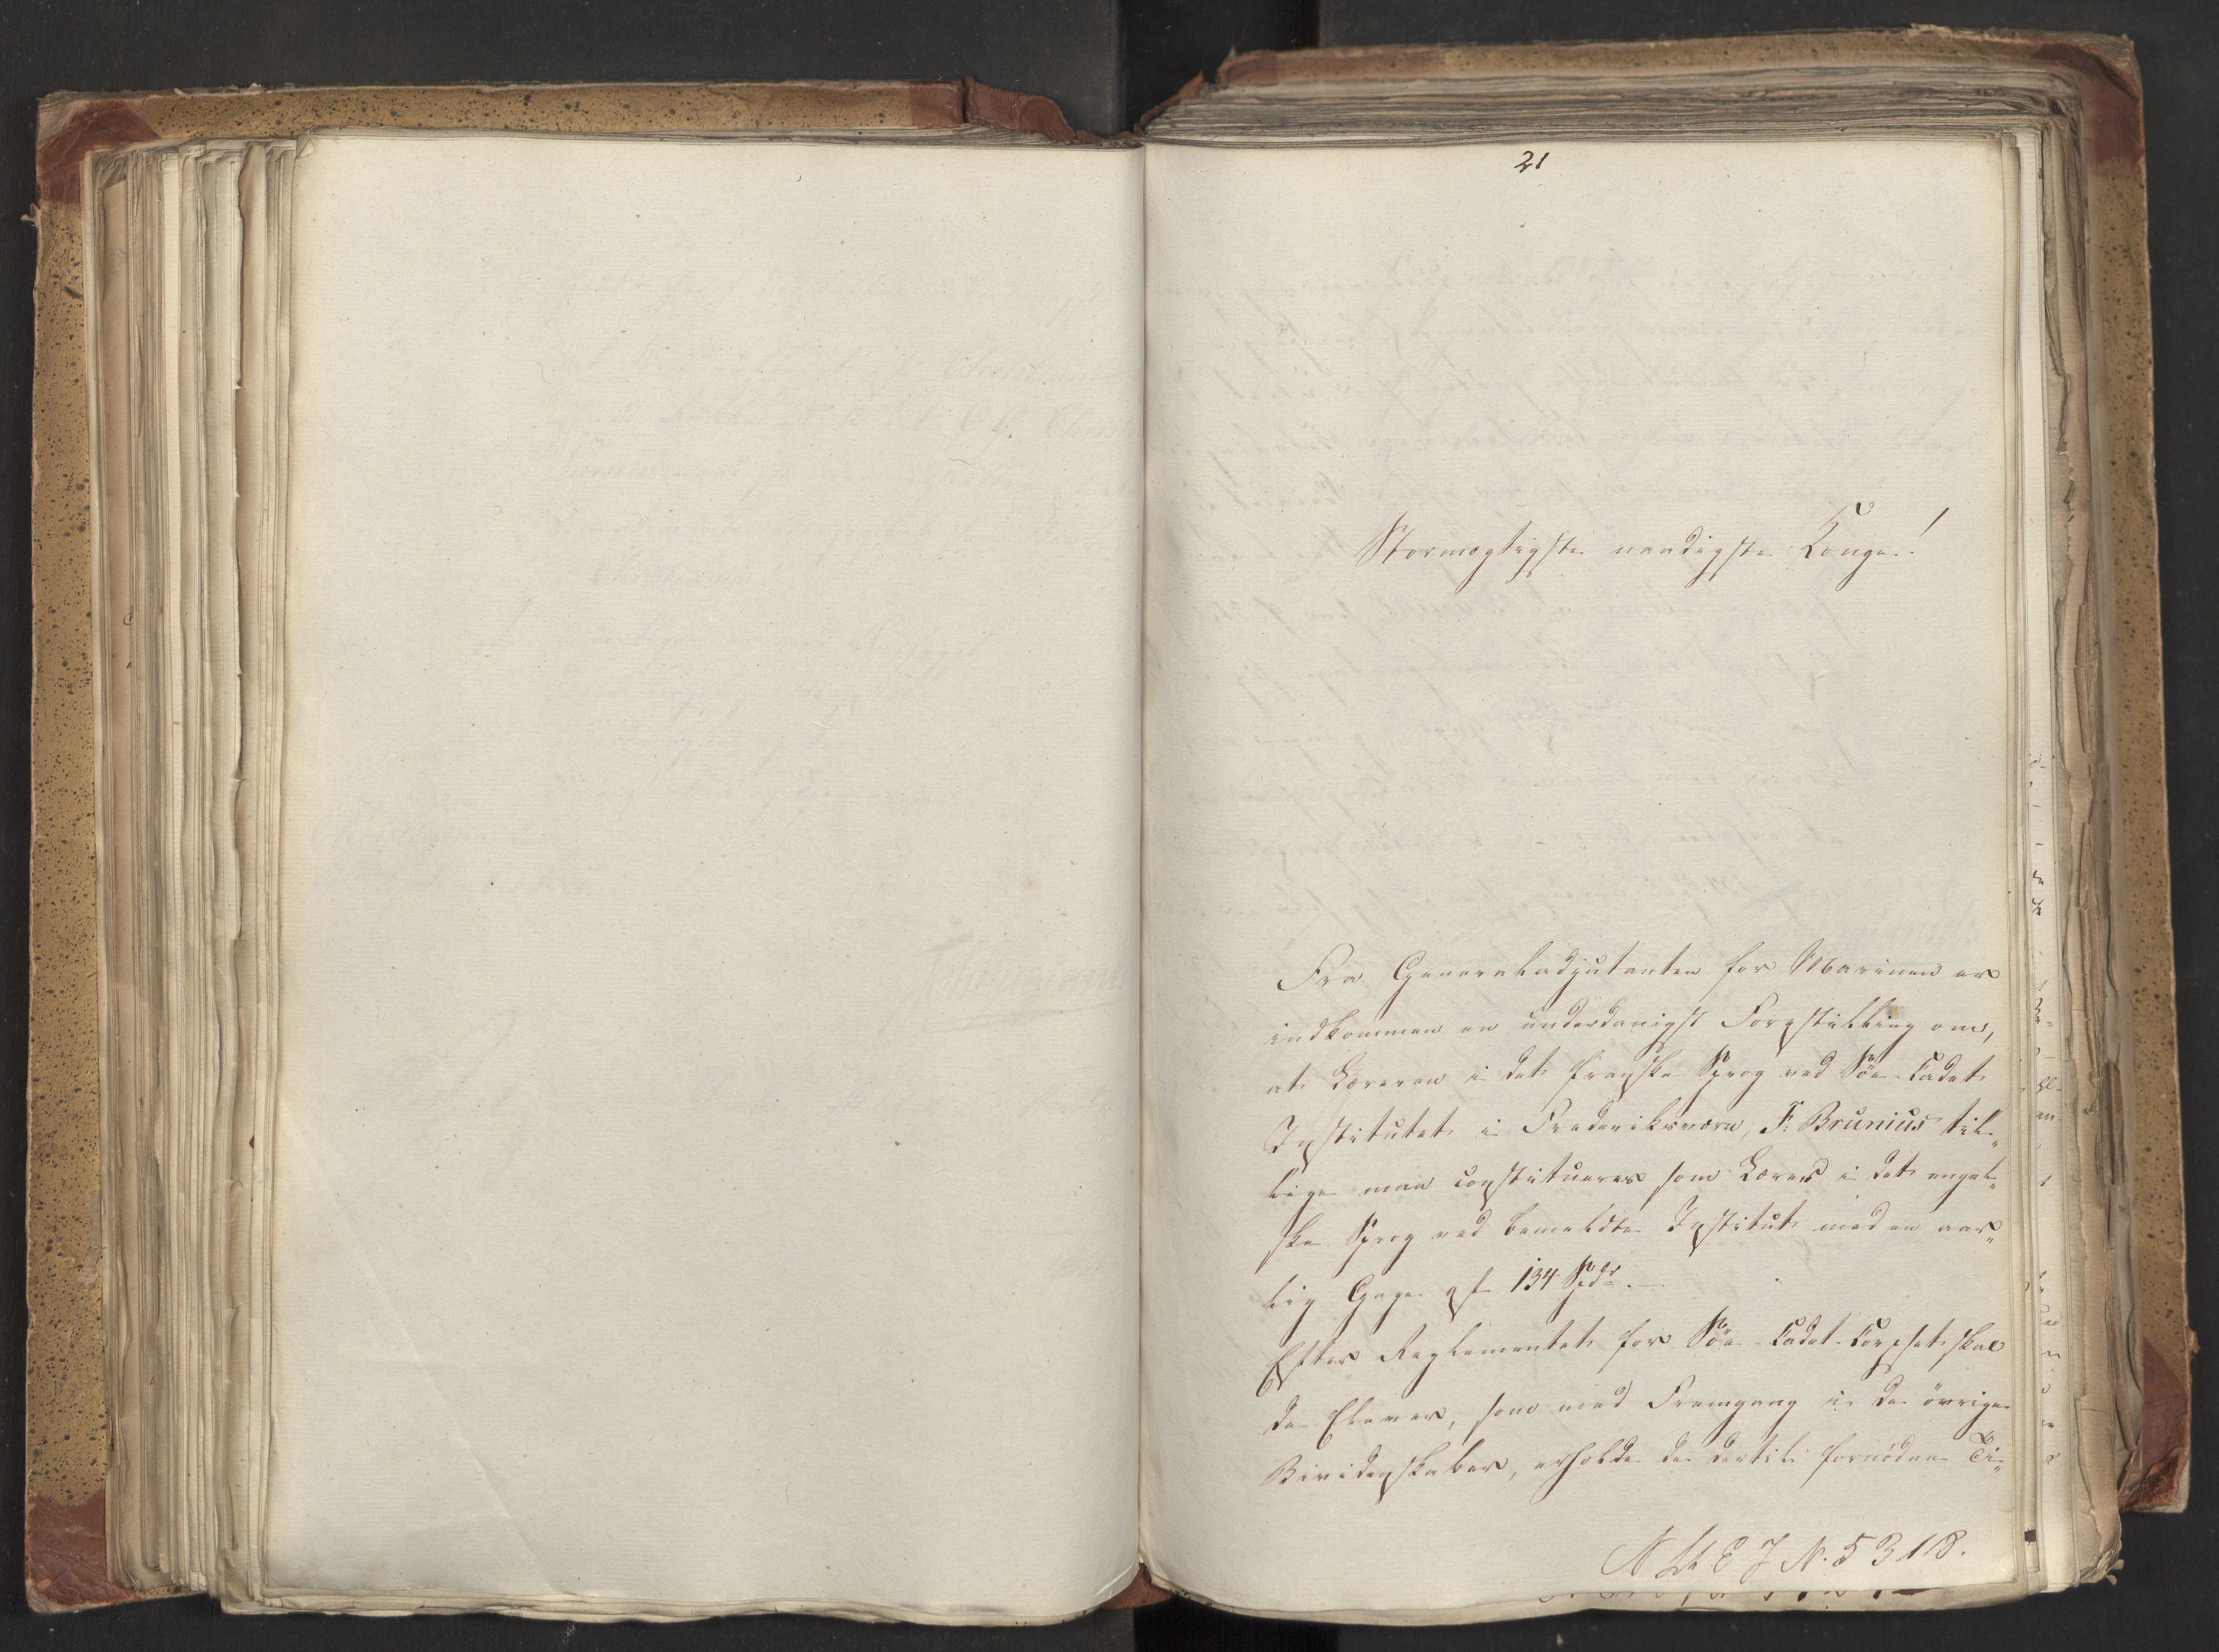 21
Stormægtigste naadigste Konge!
Fra Generaladjutanten for Marinen er
indkommen en underdanigst Forestilling om,
at Læreren i det franske Sprog ved Söe-Cadet
Institutet i Frederiksværn, F. Brunius til„
lige maa constitueres som Lærer i det engel„
ske Sprog ved bemeldte Institut med en aar„
lig Gage af 134 Spdr.
Efter Reglementet for Söe-Cadet-Corpset skal
de Elever, som med Fremgang i de övrige
Bividenskaber, erholde de dertil fornödne Ti„
N. 5318.